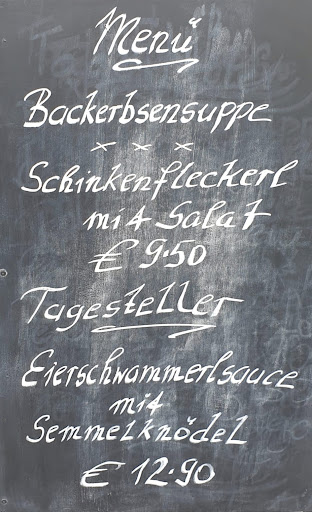 Menü
Backerbsensuppe
x x x
Schinkenfleckerl
mit Salat
€ 9.50
Tagesteller
Eierschwammerlsauce
mit
Semmelknödel
€ 12.90